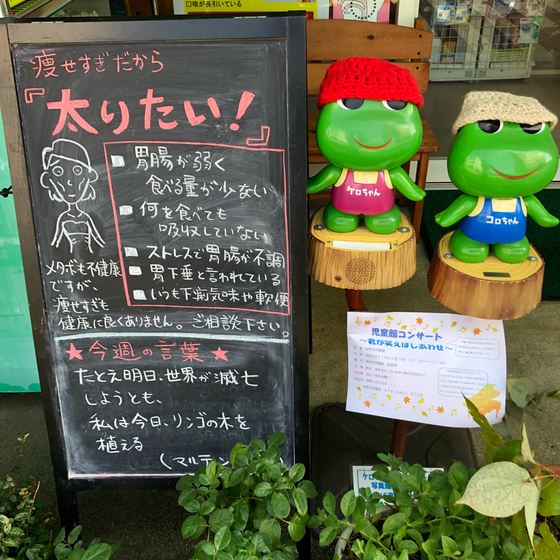 口喉が長引いている
痩せすぎだから
『太りたい!』
胃腸が弱く
食べる量が少ない
何を食べても
吸収していない
ストレスで胃腸が不調
胃下垂と言われている
いつも下痢気味や軟便
メタボも不健康
ですが、
痩せすぎも
健康に良くありません。ご相談下さい。
★今週の言葉★
たとえ明日、世界が滅亡
しようとも、
私は今日、リンゴの木を
植える
(マルテン
ケロちゃん
コロちゃん
児童館コンサート
~君が笑えばしあわせ~